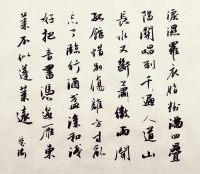 淚濕羅衣脂粉滿四疊
陽關唱到千遍人道山
長水又斷蕭微雨聞
孤館惜別傷離方寸亂
忘了臨行酒盞深和淺
好把音書憑過雁東
萊不似蓬萊遠